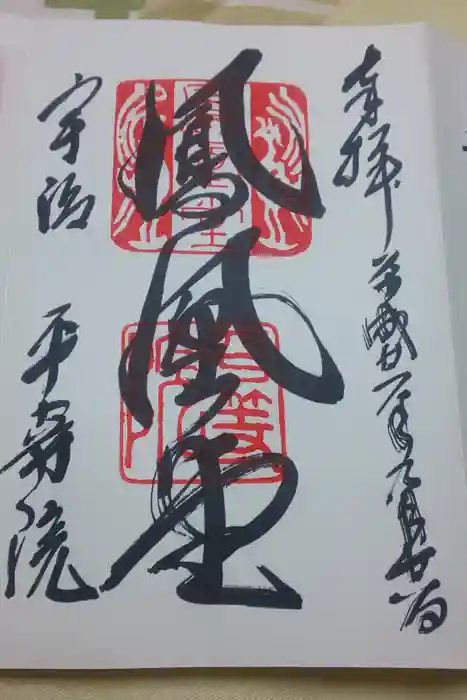 奉拝 平成廿一年九月
鳳凰堂
宇治 平等院